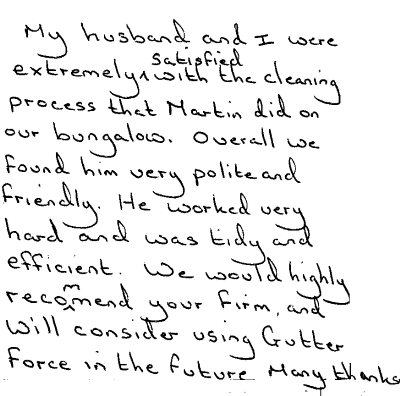 My husband and I were
extremely satisfied with the cleaning
process that Martin did on
our bungalow. Overall we
found him very polite and
friendly. He worked very
hard and was tidy and
efficient. We would highly
recommend your firm, and
will consider using Gutter
Force in the future Many thanks